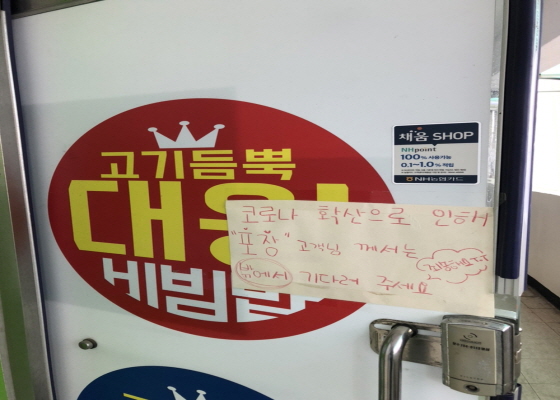 고기듬뿍
대왕
비빔밥
채움 SHOP
NHpoint
100% 사용가능
0.1~1.0% 적립
NH농협카드
코로나 확산으로 인해
"포장" 고객님 께서는
밖에서 기다려 주세요